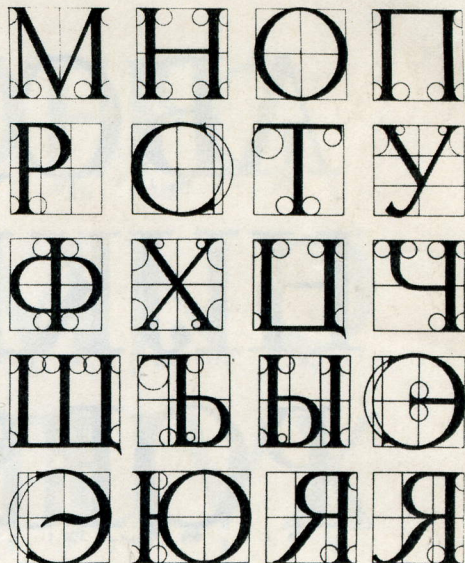 М Н О П
Р С Т У
Ф Х Ц Ч
Щ Ъ Ы Э
Э Ю Я Я